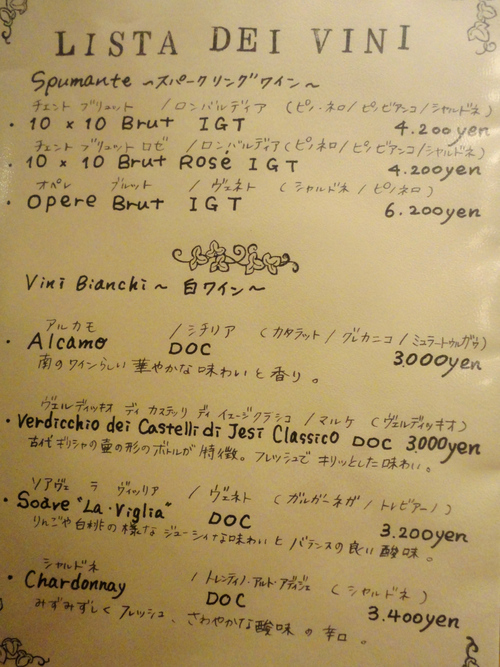 LISTA DEI VINI
Spumante ~スパークリングワイン~
チェント ブリュット /ロンバルディア (ピノ・ネロ/ピノビアンコ/シャルドネ)
・10 x 10 Brut IGT 4.200yen
チェント ブリュット ロゼ /ロンバルディア(ピノネロ/ピノビアンコ/シャルドネ)
・10 x 10 Brut Rosé IGT 4.200yen
オペレ ブルット /ヴェネト (シャルドネ/ピノネロ)
・Opere Brut IGT 6.200yen
Vini Bianchi ~ 白ワイン~
アルカモ /シチリア (カタラット/グレカニコ/ミュラートゥルガウ)
・Alcamo DOC 3.000yen
南のワインらしい華やかな味わいと香り。
ヴェルディッキオ ディ カステッリ ディ イエージクラシコ /マルケ (ヴェルディッキオ)
・Verdicchio dei Castelli di Jesi Classico DOC 3.000yen
古代ギリシャの壷の形のボトルが特徴。フレッシュでキリッとした味わい。
ソアヴェ ラ ヴィッリア /ヴェネト (ガルガーネガ/トレビアーノ)
・Soave "La・Viglia" DOC 3.200yen
りんごや白桃の様なジューシィな味わいとバランスの良い酸味。
シャルドネ /トレンティノ・アルト・アディジェ (シャルドネ)
・Chardonnay DOC 3.400yen
みずみずしくフレッシュ、さわやかな酸味の辛口。